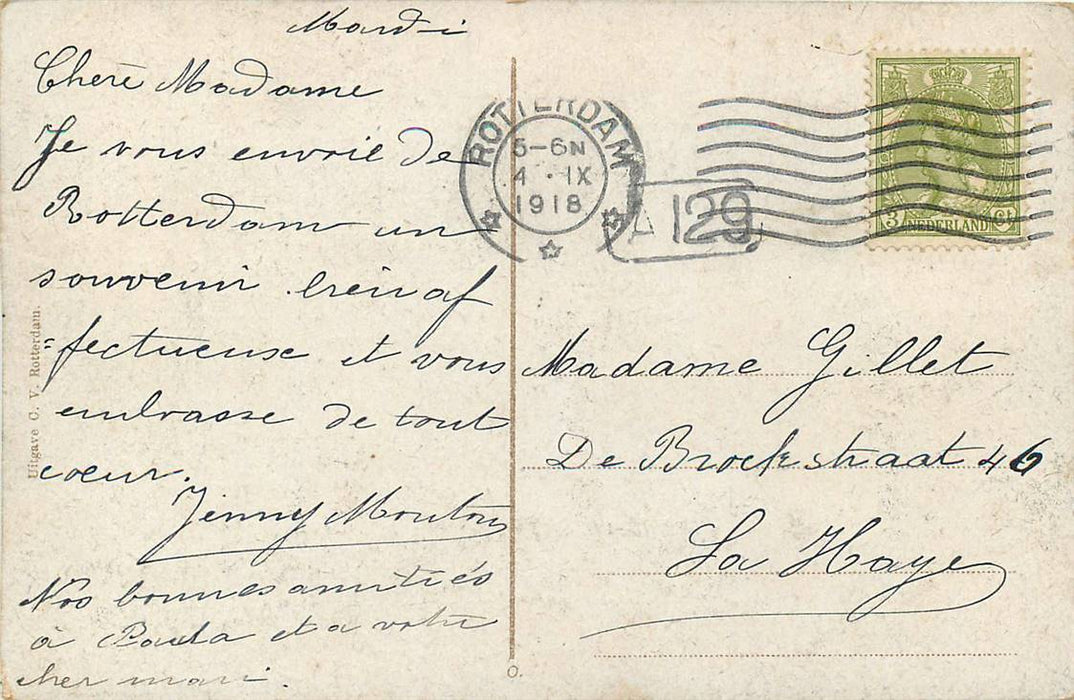 Mardi
Chère Madame
Je vous envoie de
Rotterdam un
souvenir bien af
=fectueuse et vous
embrasse de tout
coeur.
Jenny Mouton
Nos bonnes amitiés
à Paula et a votre
cher mari.
Uitgave C. V. Rotterdam.
ROTTERDAM
5-6N
4 · IX
1918
A 129
3 NEDERLAND Ct
Madame Gillet
De Brockstraat 46
La Haye
O.